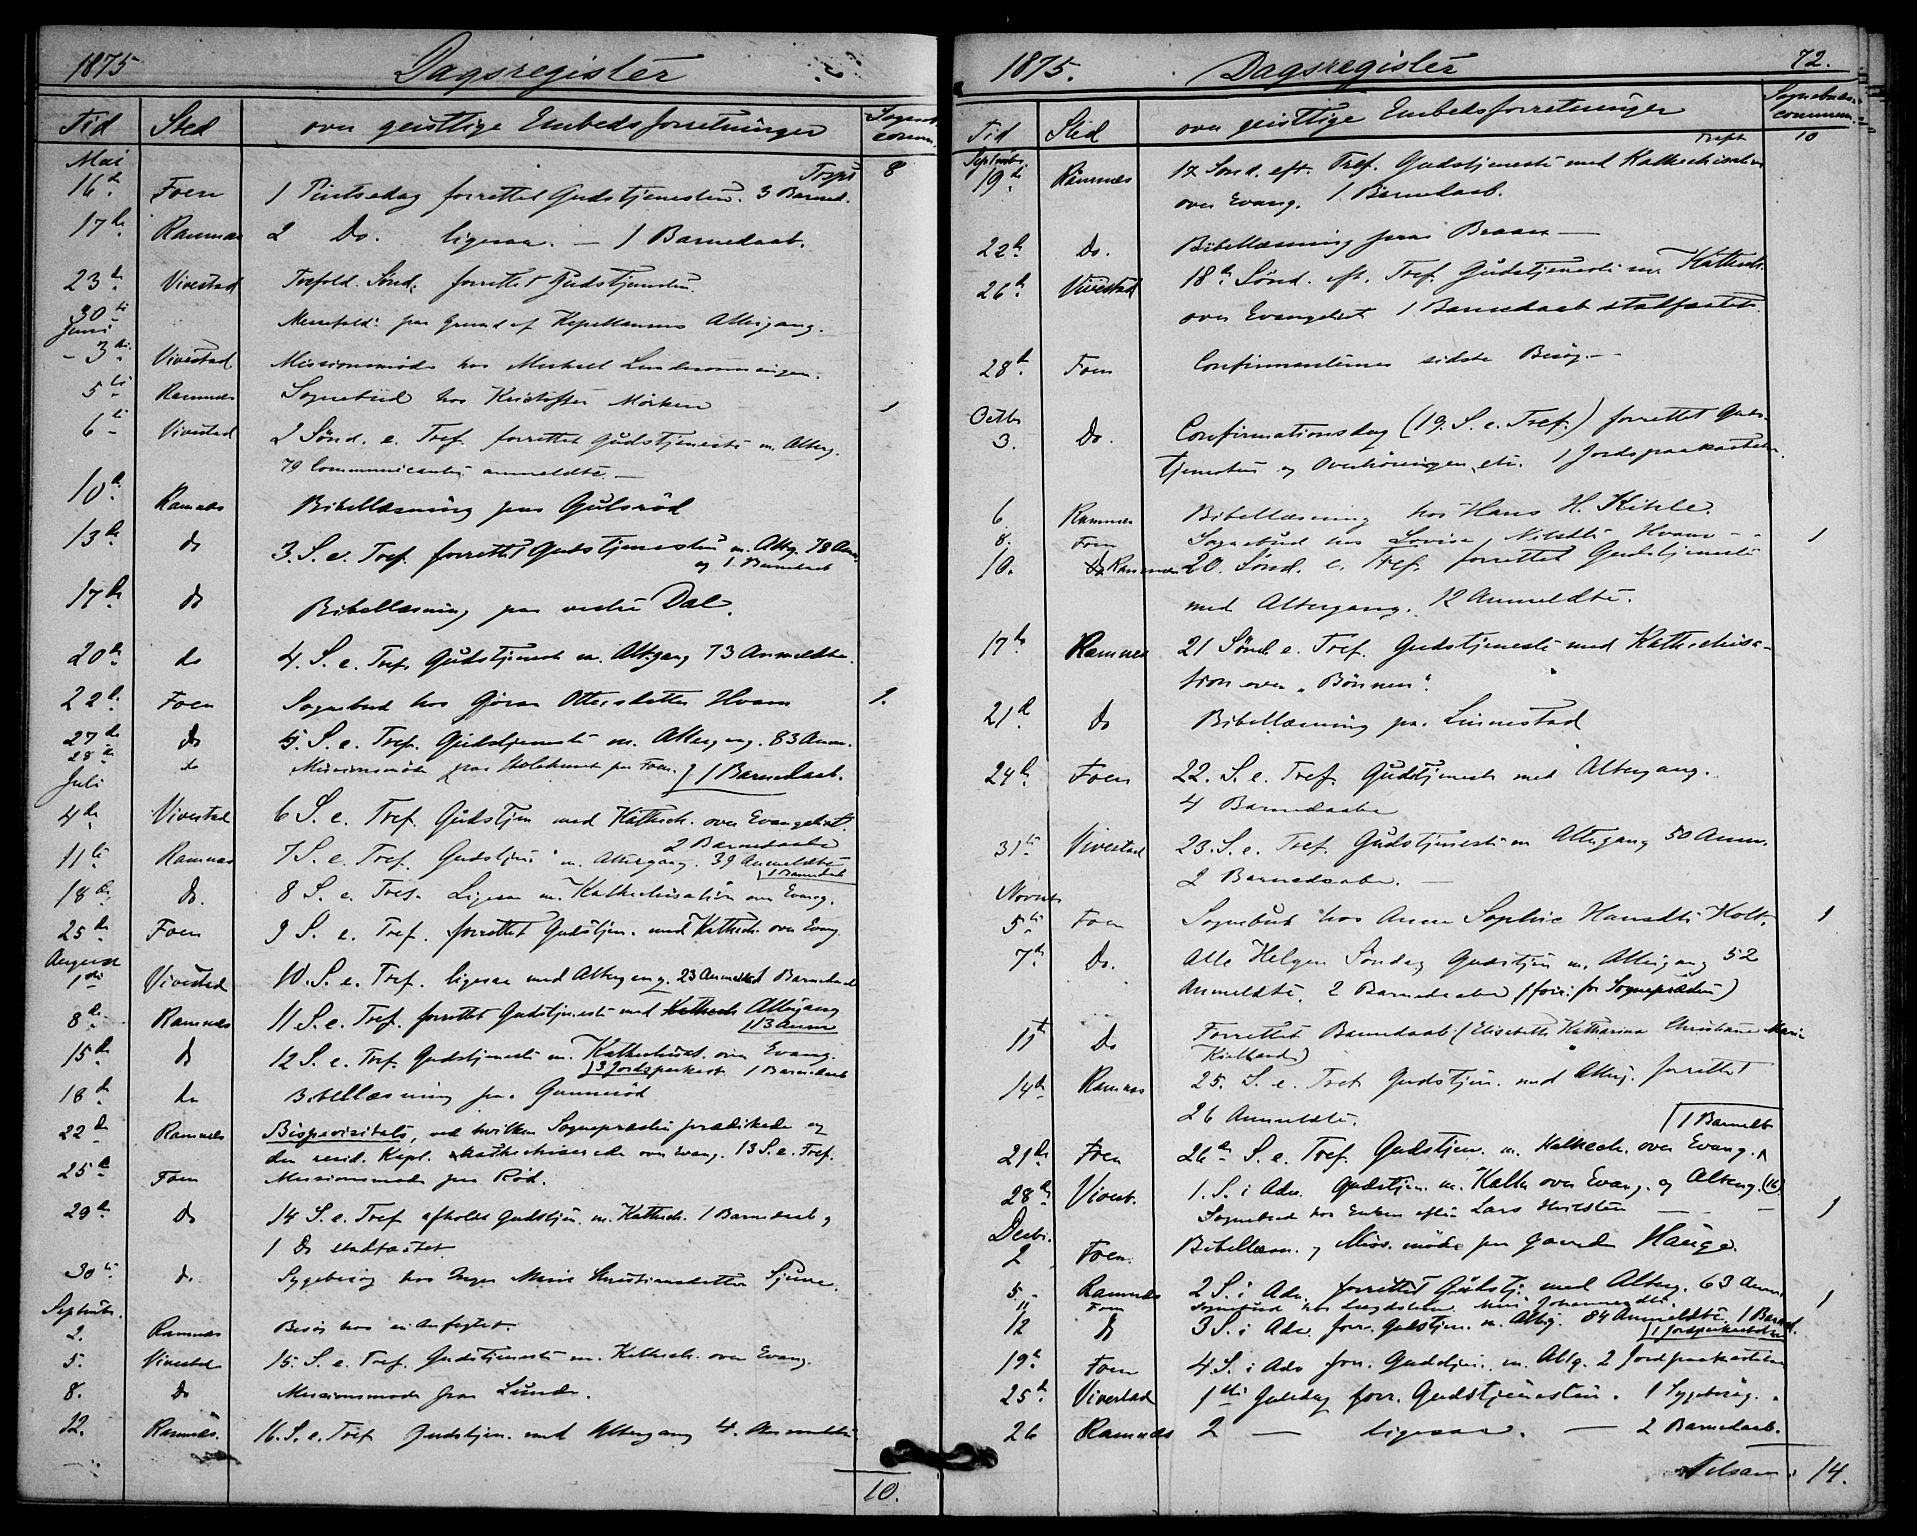 1875 Dagsregister
Tid Sted over geistlige Embedsforretninger Sogneb. comm.
Transp 8
Mai
16de Foen 1 Pintsedag forrettet Gudstjenesten. 3 Barned.
17de Ramnæs 2 Do. ligesaa. — 1 Barnedaab.
23de Vivestad Trefold. Sönd. forrettet Gudstjenesten.
30te Messefald: paa Grund af Kapellanens Altergang.
Juni
3die Vivestad Missionsmöde hos Michael
5te Ramnæs Sognebud hos Kristoffer Mörken 1
6te Vivestad 2 Sönd. e. Tref. forrettet Gudstjeneste m. Alterg.
79 Communicanter anmeldte. —
10de Ramnæs Bibellæsning paa Gulsröd
13de do 3. S. e. Tref. forrettet Gudstjenesten m. Altg. 78 Anm.
og 1 Barnedaab
17de do Bibellæsning paa vestre Dal.
20de do 4. S. e. Tref. Gudstjeneste m. Altgang 73 Anmeldte.
22de Foen Sognebud hos Gjöran Ottersdatter Hvam 1.
27de do 5. S. e. Tref. Gudstjeneste m. Altergang. 83 Anm.
28de do Missionsmöde paa Foen. 1 Barnedaab.
Juli
4de Vivestad 6 S. e. Tref. Gudstjen med Kathech. over Evangeliet.
2 Barnedaabe
11te Ramnæs 7 S. e. Tref. Gudstjen m. Altergang. 39 Anmeldte
1 Barnedaab
18de do. 8 S. e. Tref. Ligesaa m. Kathechisation over Evang.
25de Foen 9 S. e. Tref. forrettet Gudstjen. med Kathech. over Evang.
August
1ste Vivestad 10. S. e. Tref. ligesaa med Altergang. 23 Anmeldt 1 Barnedaab
8de Ramnæs 11 S. e. Tref. forrettet Gudstjeneste med Kathech Altergang
113 Anm
15de do 12 S. e. Tref. Gudstjeneste m. Kathechisat. over Evang.
3 Jordspaakast. 1 Barnedaab
18de do Bibellæsning paa Gunneröd
22de Ramnæs Bispevisitats, ved hvilken Sognepræsten prædikede og
den resid. Kapl. kathechiserede over Evang. 13 S. e. Tref.
25de Foen Missionsmöde paa Röd.
29de do 14 S. e. Tref afholdt Gudstjen. m. Kathech. 1 Barnedaab og
1 Do stadfæstet.
30te do Sygebesög hos Inger Marie Christiansdatter
Septembr.
2. Ramnæs Besög hos en Anfægtet.
5. Vivestad 15. S. e. Tref. Gudstjeneste m. Kathech. over Evang.
8. do Missionsmöde paa Lunde.
12. Ramnæs. 16. S. e. Tref Gudstjen. med Altergang 4. Anmeldte
10.
1875. Dagsregister 72.
Tid Sted over geistlige Embedsforretninger Sognebuds commun.
Trspt 10
Septembr.
19de Ramnæs 17 Sönd. eft. Tref. Gudstjeneste med Kathechisation
over Evang. 1 Barnedaab.
22de Do. Bibellæsning paa Braaen —
26de Vivestad 18de Sönd. eft. Tref. Gudstjeneste m. Kathech.
over Evangeliet 1 Barnedaab stadfæstet.
28de Foen Confirmanternes sidste Besög. —
Octbr
3. Do. Confirmationsdag (19. S. e. Tref.) forrettet Guds-
tjenesten og Overhöringen etc. 1 Jordspaakastelse.
6. Ramnæs Bibellæsning hos Hans H. Kihle.
8. Foen Sognebud hos Lovise Nilsdtr Hvam — 1
10. Ramnæs 20. Sönd. e. Tref. forrettet Gudstjeneste
med Altergang. 12 Anmeldte.
17de Ramnes 21 Sönd e. Tref. Gudstjeneste med Kathechisa-
tion over „Bönnen".
21de do Bibellæsning pa. Linnestad
24de Foen 22. S. e. Tref. Gudstjeneste med Altergang.
4 Barnedaabe
31te Vivestad 23. S. e. Tref. Gudstjeneste m Altergang 50 Anm.
2 Barnedaabe. —
Novmb
5te Foen Sognebud hos Anne Sophie Hansdtr Holt. 1
7de Do. Alle Helgen Söndag Gudstjen m. Altergang 52
Anmeldte, 2 Barnedaabe (forr: for Sognepræsten)
11te do Forrettet Barnedaab (Elisabeth Katharina Christiane Marie
Kielland)
14de Ramnæs 25. S. e. Tref Gudstjen. med Alterg. forrettet
26 Anmeldte. 1 Barnedb
21de Foen 26de S. e. Tref. Gudstjen. m. Kathech. over Evang.
28de Vivest. 1. S. i Adv. Gudstjen. m. Kath over Evang. og Alterg. (16)
Sognebud hos Enken efter Lars — 1
Decbr.
2 Foen. Bibellæsn. og Miss. möde paa gaarden Hauge.
5. Ramnæs 2 S. i Adv. forrettet Gudstj. med Alterg. 63 Anm.
11 Foen Sognebud hos Johannesdtr. 1
12 do 3 S. i Adv. forr. Gudstjen. m. Altg. 84 Anmeldte. 1 Barned.
1 Jordspaakastelse
19de Foen 4 S. i Adv forr. Gudstjen. m. Altg. 2 Jordpaakastelse
25de Vivestad 1ste Juledag forr. Gudstjenesten. 1 Sygebesög.
26 Ramnæs 2 — ligesaa. — 2 Barnedaab.
Tilsam: 14.